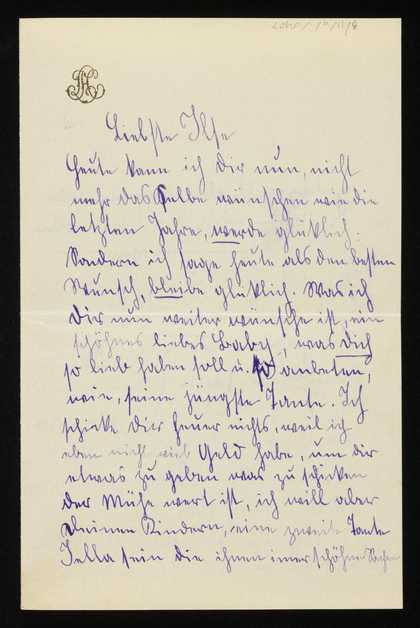 Liebste Ilse
Heute kann ich Dir nun, nicht
mehr das selbe wünschen wie die
letzten Jahre, werde glüklich.
Sondern ich sage heute als den besten
Wunsch, bleibe glüklich. Was ich
Dir nun weiter wünsche ist, ein
schöhnes liebes Baby, was Dich
so lieb haben soll u. so anbeten,
wie, seine jüngste Tante. Ich
schicke Dir heuer nichts, weil ich
eben nicht viel Geld habe, um dir
etwas zu geben was zu schicken
der Mühe wert ist, ich will aber
Deinen Kindern, eine zweite Tante
Jella sein die ihnen imer schöhne Sachen